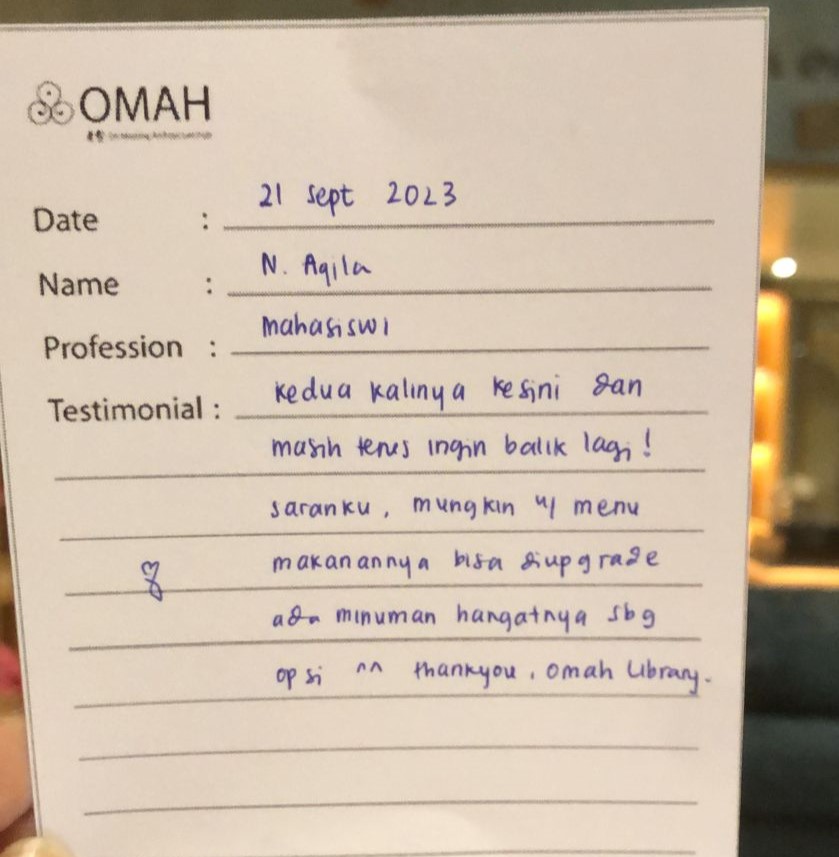 OMAH
Date : 21 sept 2023
Name : N. Aqila
Profession : mahasiswi
Testimonial : kedua kalinya kesini dan
masih terus ingin balik lagi!
saranku, mungkin u/ menu
makanannya bisa diupgrade
ada minuman hangatnya sbg
opsi ^^ thankyou, omah library.